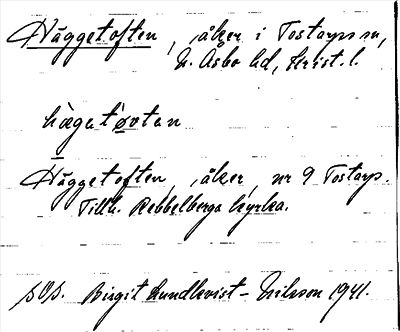 Häggetoften, åker i Tostarps sn,
N. Åsbo hd, Krist. l.
hæget'øvten
Häggetoften, åker, nr 9 Tostarp.
Tillh. Rebbelberga kyrka.
Birgit Lundkvist-Nilsson 1941.